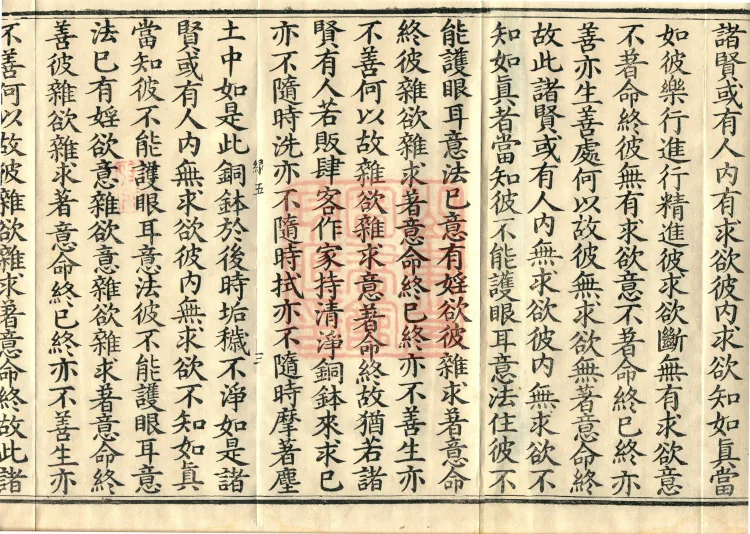 諸賢或有人內有求欲彼內求欲知如眞當
如彼樂行進行精進彼求欲斷無有求欲意
不著命終彼無有求欲意不著命終已終亦
善亦生善處何以故彼無求欲無著意命終
故此諸賢或有人內無求欲彼內無求欲不
知如眞者當知彼不能護眼耳意法住彼不
能護眼耳意法已意有婬欲彼雜求著意命
終彼雜欲雜求著意命終已終亦不善生亦
不善何以故雜欲雜求意著命終故猶若諸
賢有人若販肆客作家持清淨銅鉢來求已
亦不隨時洗亦不隨時拭亦不隨時摩著塵
緣五 三
土中如是此銅鉢於後時垢穢不淨如是諸
賢或有人內無求欲彼內無求欲不知如眞
當知彼不能護眼耳意法彼不能護眼耳意
法已有婬欲意雜欲意雜欲雜求著意命終
善彼雜欲雜求著意命終已終亦不善生亦
不善何以故彼雜欲雜求著意命終故此諸